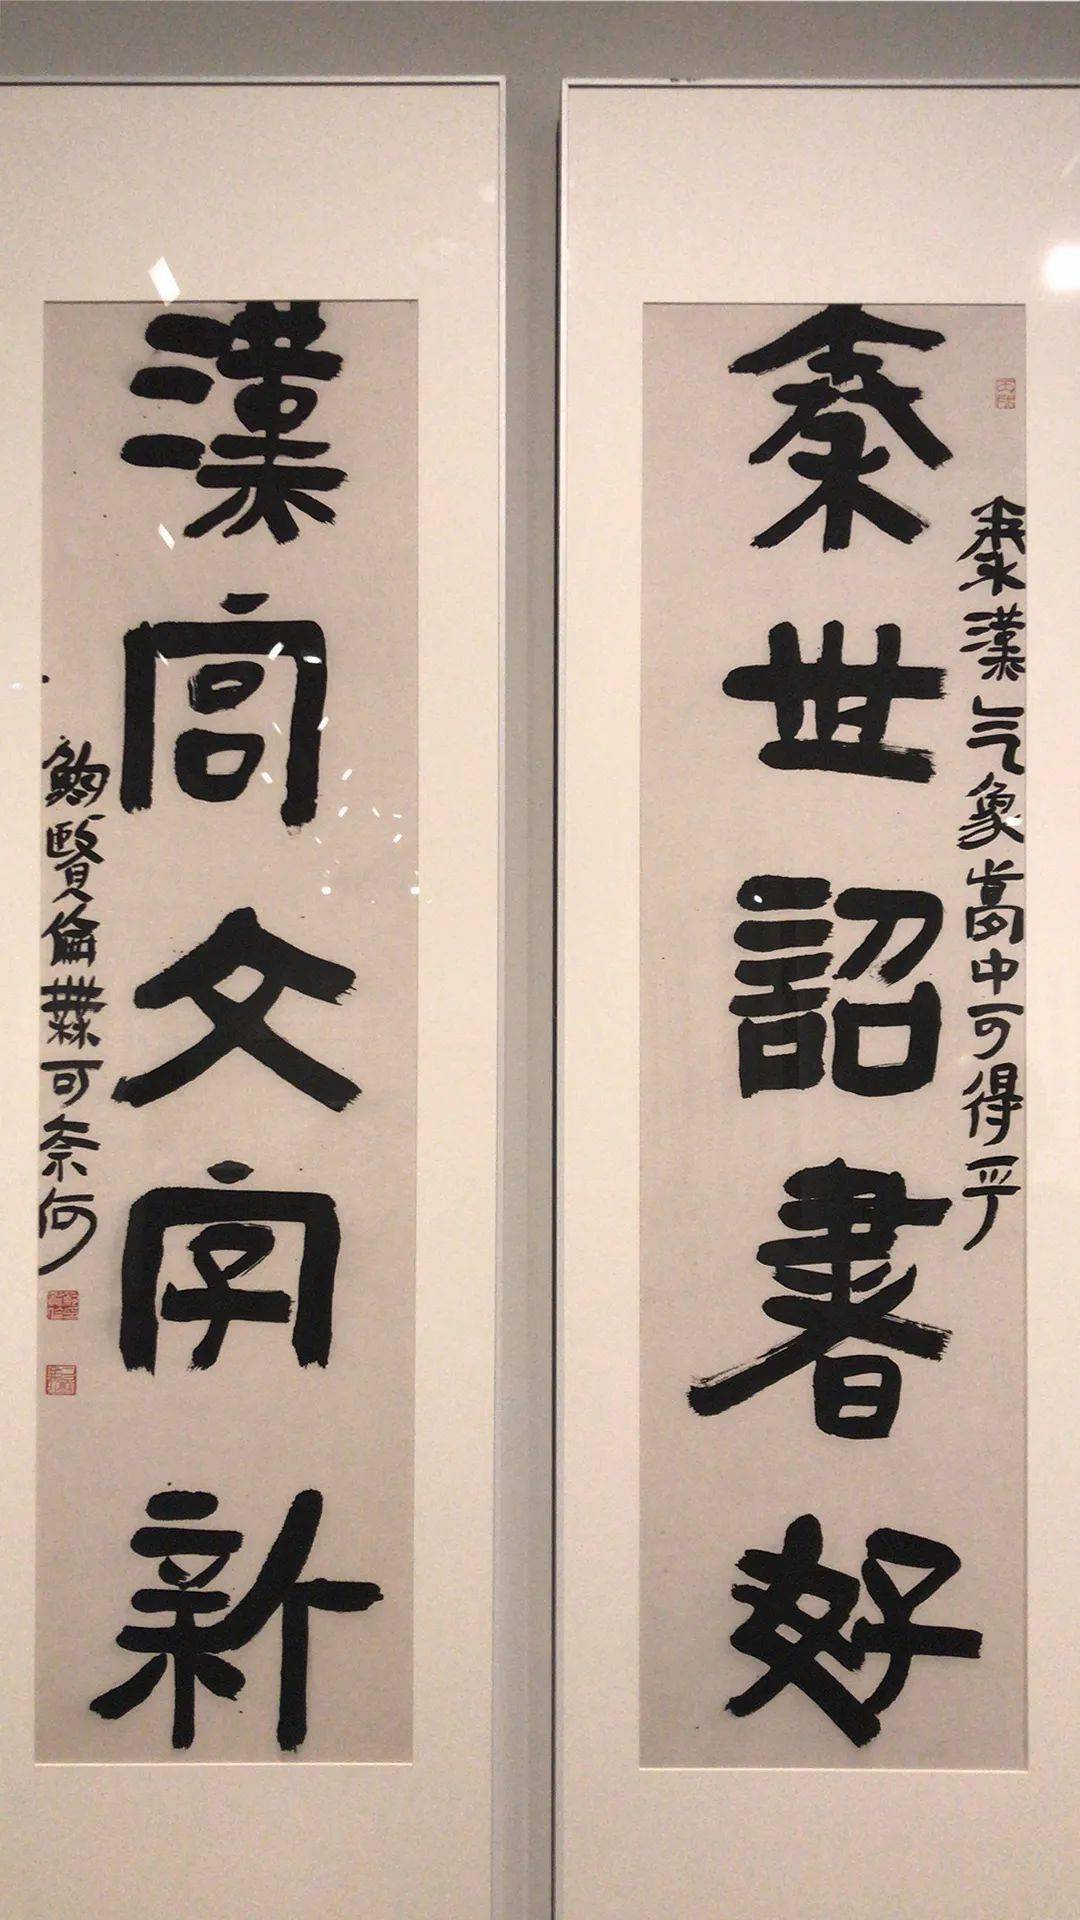 秦漢气象夢中可得乎
秦世詔書好
漢宫文字新
鮑賢倫無可奈何